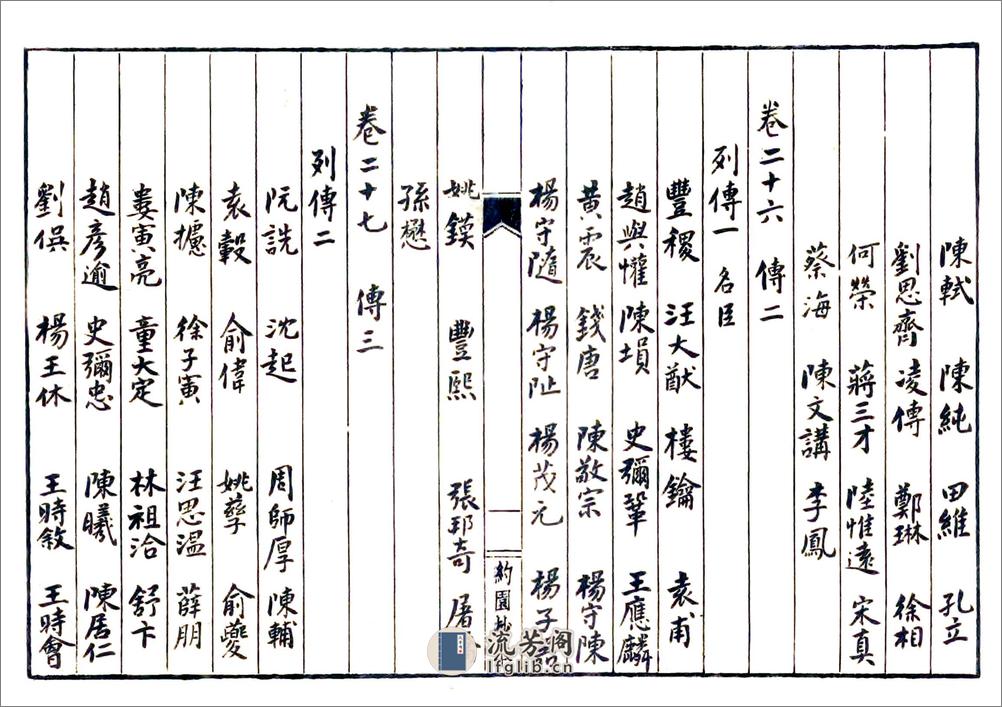 陳軾 陳純 田維 孔立
劉思齊 凌傳 鄭琳 徐相
何榮 蔣三才 陸惟遠 宋真
蔡海 陳文講 李鳳
卷二十六 傳二
列傳一 名臣
豐稷 汪大猷 樓鑰 袁甫
趙與懽 陳塤 史彌鞏 王應麟
黃震 錢唐 陳敬宗 楊守陳
楊守隨 楊守阯 楊茂元 楊子器
約園抄本
姚鏌 豐熙 張邦奇 屠
孫懋
卷二十七 傳三
列傳二
阮詵 沈起 周師厚 陳輔
袁轂 俞偉 姚孳 俞夔
陳攄 徐子寅 汪思溫 薛朋
婁寅亮 童大定 林祖洽 舒卞
趙彥逾 史彌忠 陳曦 陳居仁
劉俁 楊王休 王時敘 王時會
流芳閣
lfglib.cn